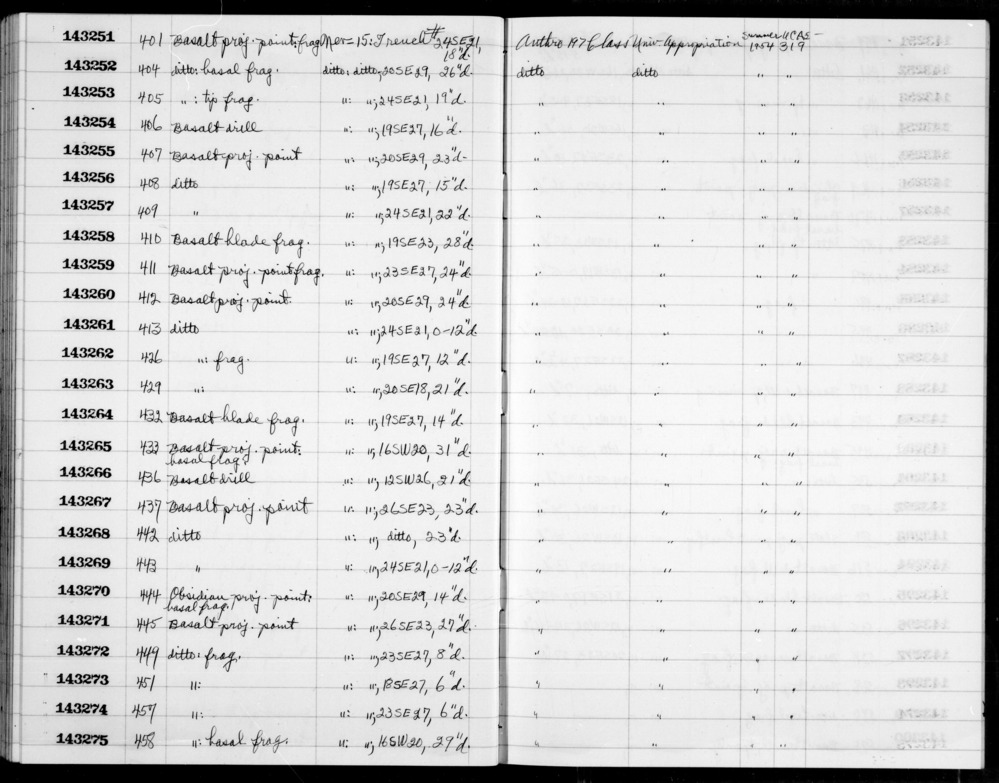 143251 401 Basalt proj. point: frag Nev-15: Trench #24SE21, 18"d. Anthro 197 Class Univ. Appropriation Summer 1954 UCAS-319
143252 404 ditto: basal frag. ditto: ditto; 20SE29, 26"d. ditto ditto " "
143253 405 ": tip frag. ": "; 24SE21, 19"d. " " " "
143254 406 Basalt drill ": "; 19SE27, 16"d. " " " "
143255 407 Basalt proj. point ": "; 20SE29, 23"d. " " " "
143256 408 ditto ": "; 19SE27, 15"d. " " " "
143257 409 " ": "; 24SE21, 22"d. " " " "
143258 410 Basalt blade frag. ": "; 19SE23, 28"d. " " " "
143259 411 Basalt proj. point frag. ": "; 23SE27, 24"d. " " " "
143260 412 Basalt proj. point. ": "; 20SE29, 24"d. " " " "
143261 413 ditto ": "; 24SE21, 0-12"d. " " " "
143262 426 ": frag. ": "; 19SE27, 12"d. " " " "
143263 429 ": ": "; 20SE18, 21"d. " " " "
143264 432 Basalt blade frag. ": "; 19SE27, 14"d. " " " "
143265 433 Basalt proj. point: basal frag. ": "; 16SW20, 31"d. " " " "
143266 436 Basalt drill ": "; 12SW26, 21"d. " " " "
143267 437 Basalt proj. point ": "; 26SE23, 23"d. " " " "
143268 442 ditto ": "; ditto, 23"d. " " " "
143269 443 " ": "; 24SE21, 0-12"d. " " " "
143270 444 Obsidian proj. point: basal frag. ": "; 20SE29, 14"d. " " " "
143271 445 Basalt proj. point ": "; 26SE23, 27"d. " " " "
143272 449 ditto: frag. ": "; 23SE27, 8"d. " " " "
143273 451 ": ": "; 18SE27, 6"d. " " " "
143274 457 ": ": "; 23SE27, 6"d. " " " "
143275 458 ": basal frag. ": "; 16SW20, 29"d. " " " "